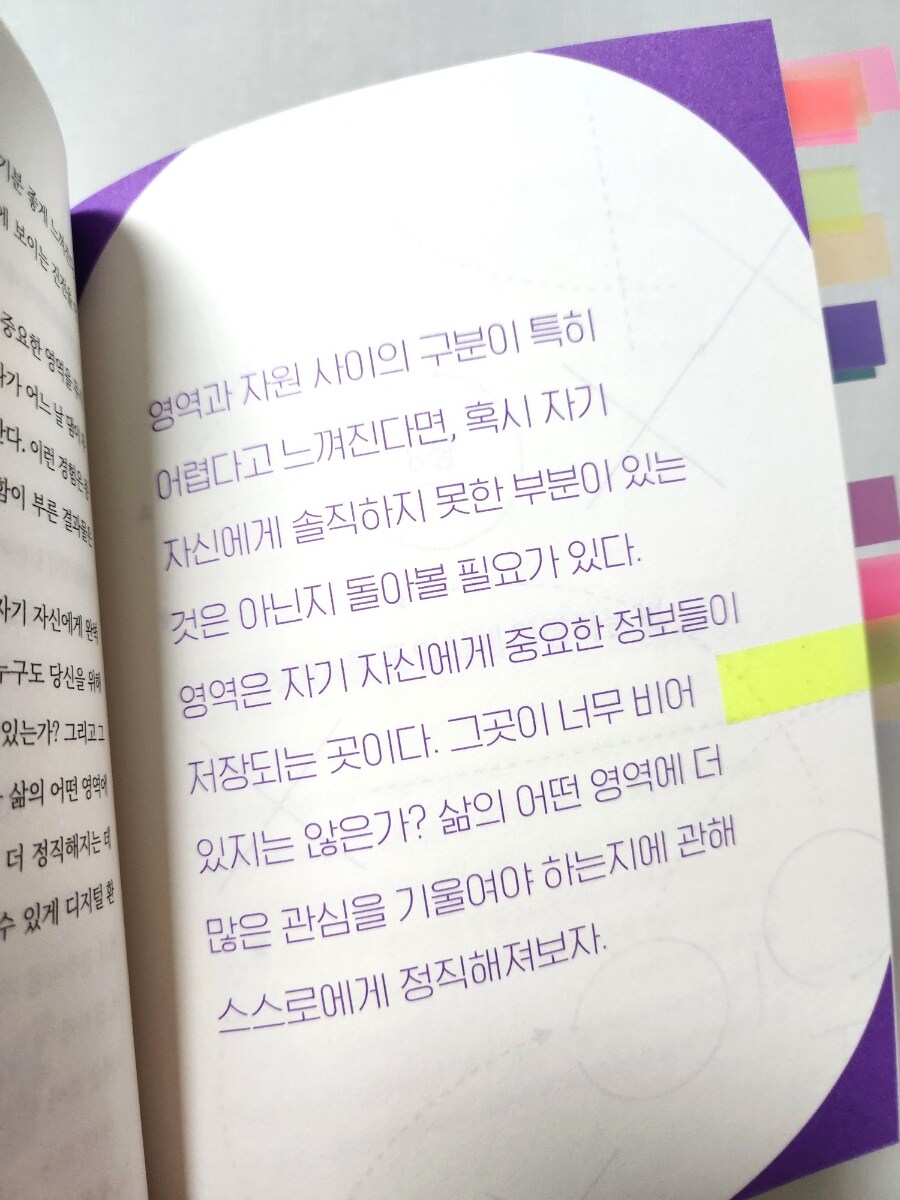 기분 좋게
보이는
중요한 영역을
어느 날
이런 경험은
부른 결과물은
자기 자신에게 완벽
누구도 당신을 위해
있는가? 그리고 그
삶의 어떤 영역에
더 정직해지는 데
수 있게 디지털 환
영역과 자원 사이의 구분이 특히
어렵다고 느껴진다면, 혹시 자기
자신에게 솔직하지 못한 부분이 있는
것은 아닌지 돌아볼 필요가 있다.
영역은 자기 자신에게 중요한 정보들이
저장되는 곳이다. 그곳이 너무 비어
있지는 않은가? 삶의 어떤 영역에 더
많은 관심을 기울여야 하는지에 관해
스스로에게 정직해져보자.